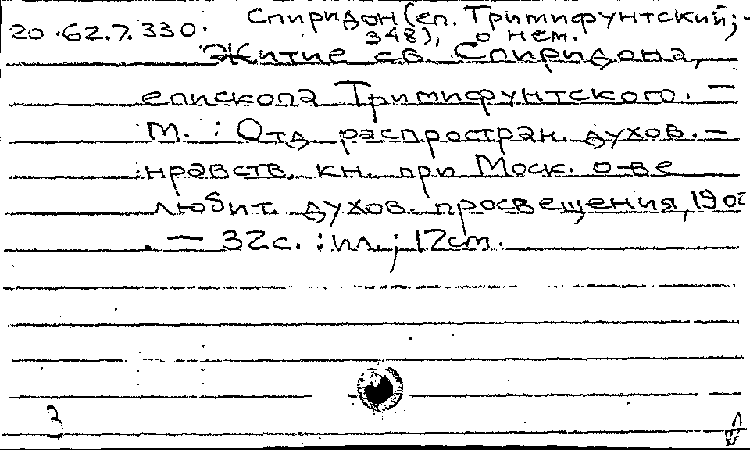 20.62.7.330. Спиридон (еп. Тримифунтский; -
348), о нем.
Житие св. Спиридона,
епископа Тримифунтского. –
М. : Отд. распростран. духов. –
нравств. кн. при Моск. о-ве
любит. духов. просвещения, 190
. – 32 с. : ил. ; 12 cm.
З